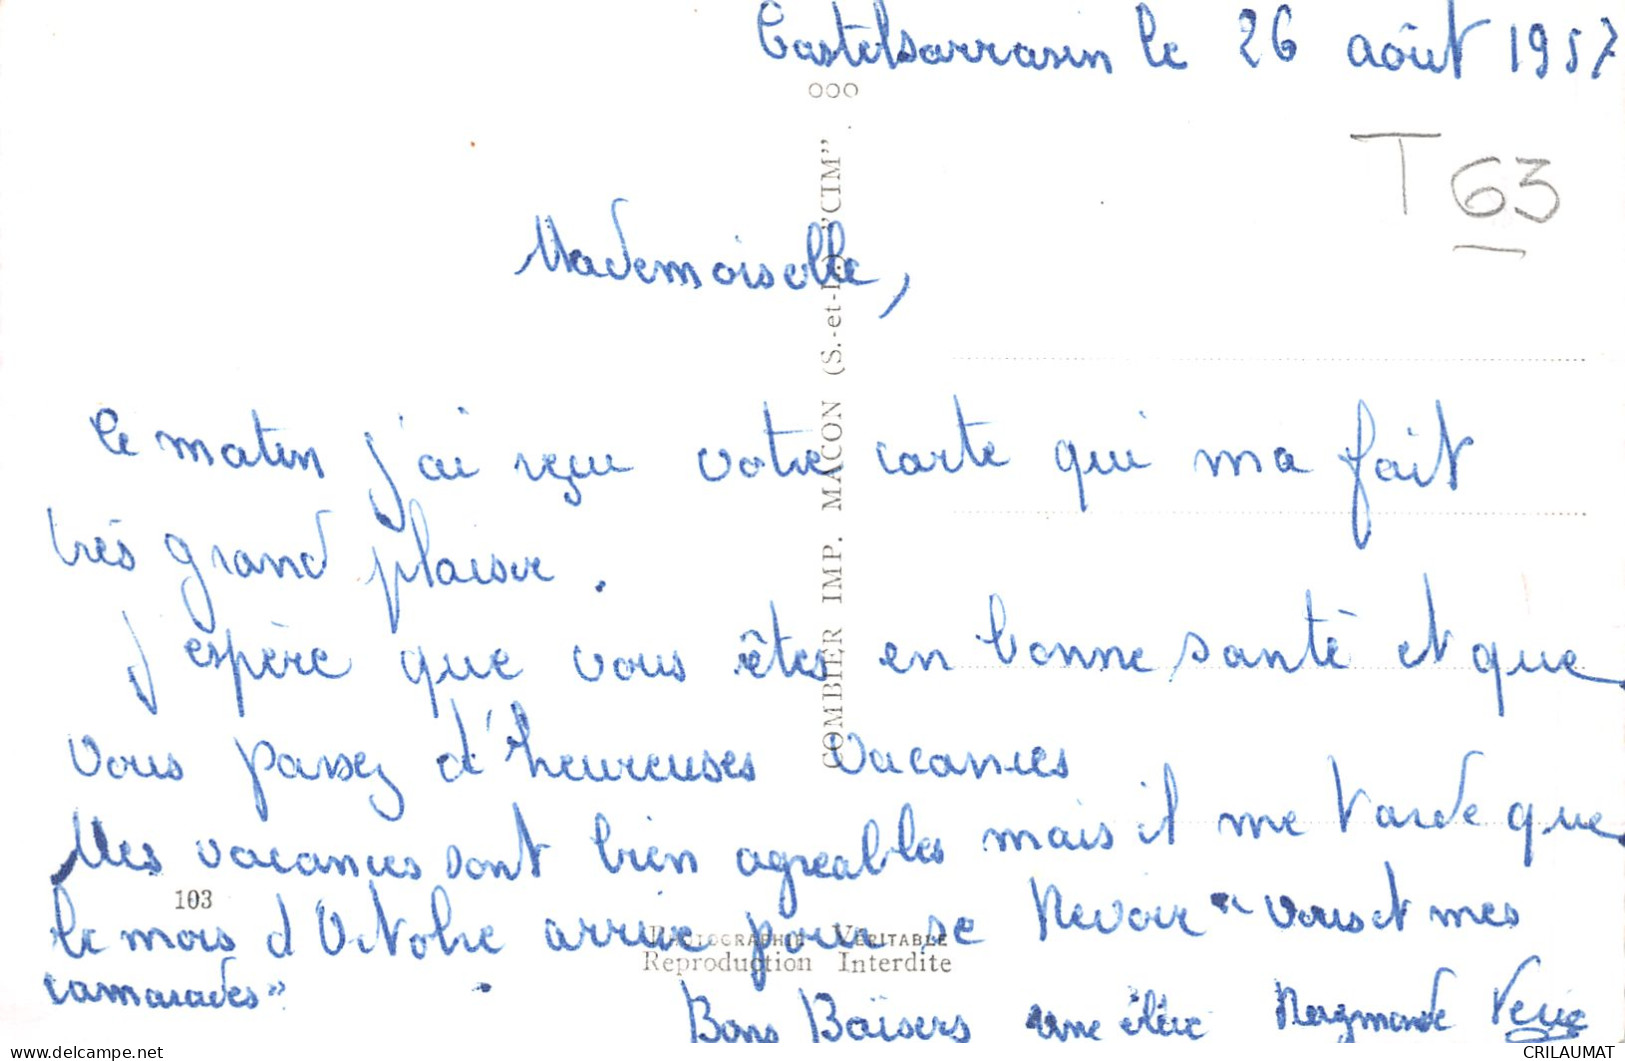 Castelsarrasin le 26 août 1957
T 63
Mademoiselle,
Ce matin j'ai reçu votre carte qui ma fait
très grand plaisir.
J'espère que vous êtes en bonne santé et que
vous passez d'heureuses vacances
Mes vacances sont bien agreables mais il me tarde que
le mois d'Octobre arrive pour se Revoir "vous et mes
camarades".
Bons Baisers une élève Raymonde
COMBIER IMP. MACON (S.-et-L.) "CIM"
103
PHOTOGRAPHIE VÉRITABLE
Reproduction Interdite
delcampe.net
CRILAUMAT